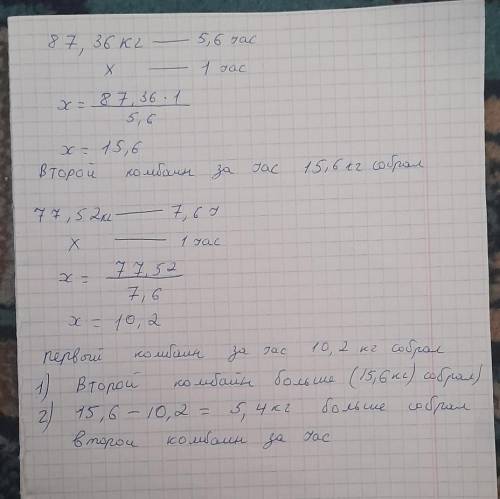 87,36 кг — 5,6 час
х — 1 час
х = 87,36·1
5,6
х = 15,6
Второй комбаин за час 15,6 кг собрал
77,52 кг — 7,6 ч
х — 1 час
х = 77,52
7,6
х = 10,2
первый комбаин за час 10,2 кг собрал
1) Второй комбайн больше (15,6 кг) собрал)
2) 15,6 – 10,2 = 5,4 кг больше собрал
второй комбаин за час